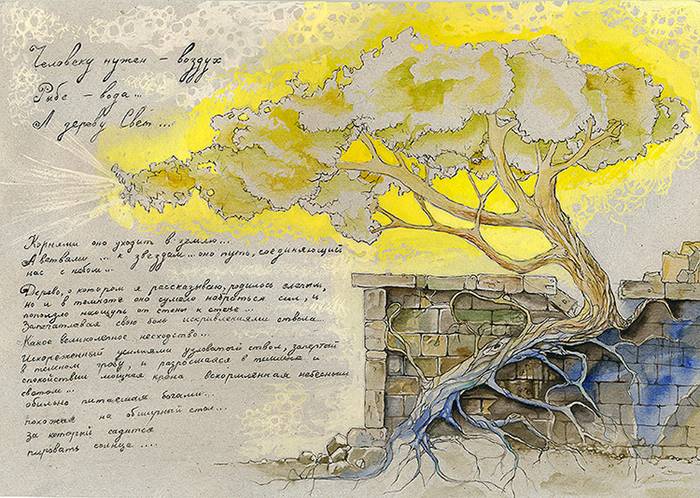 Человеку нужен – воздух
Рыбе – вода...
А дереву Свет...
Корнями оно уходит в землю...
А ветвами ... к звездам... оно путь, соединяющий
нас с небом...
Дерево, о котором я рассказываю, родилось слепым,
но и в темноте оно сумело набраться сил, и
поползло наощупь от стены к стене...
Запечатлевая свою боль искривлениями ствола...
Какое великолепное несходство...
Искореженный усилиями узловатый ствол, запертый
в темном гробу, и разросшаяся в тишине и
спокойствии мощная крона вскормленная небесным
светом...
обильно питаемая богами...
похожая на обширный стол...
за который садится
пировать солнце....